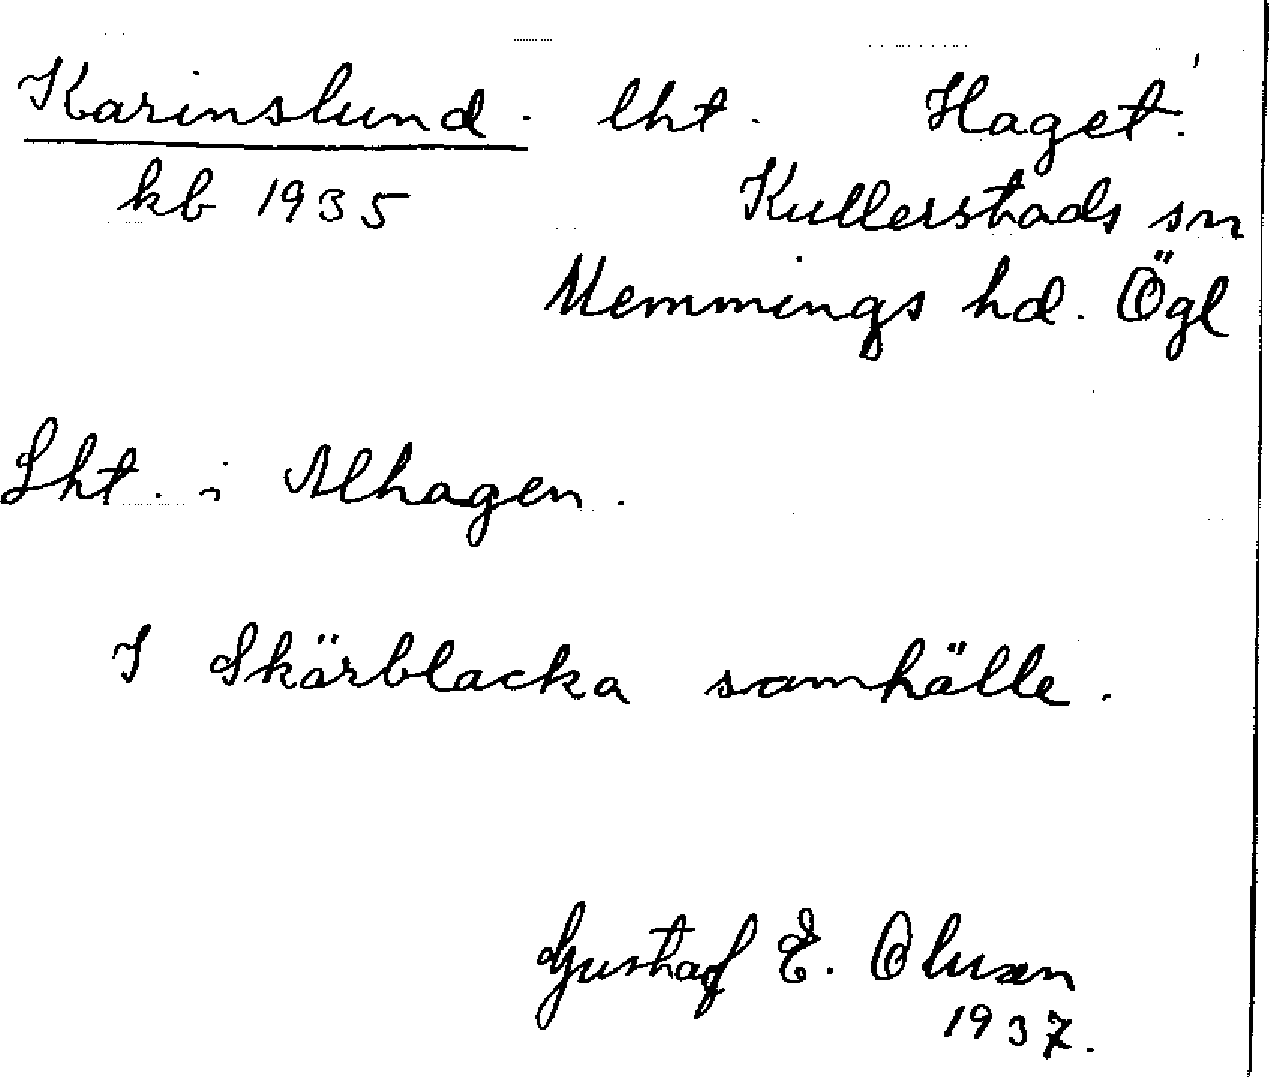 Karinslund. lht. Haget.
kb 1935 Kullerstads sn
Memmings hd. Ögl
Lht. i Alhagen.
I Skärblacka samhälle.
Gustaf E. Olusen
1937.